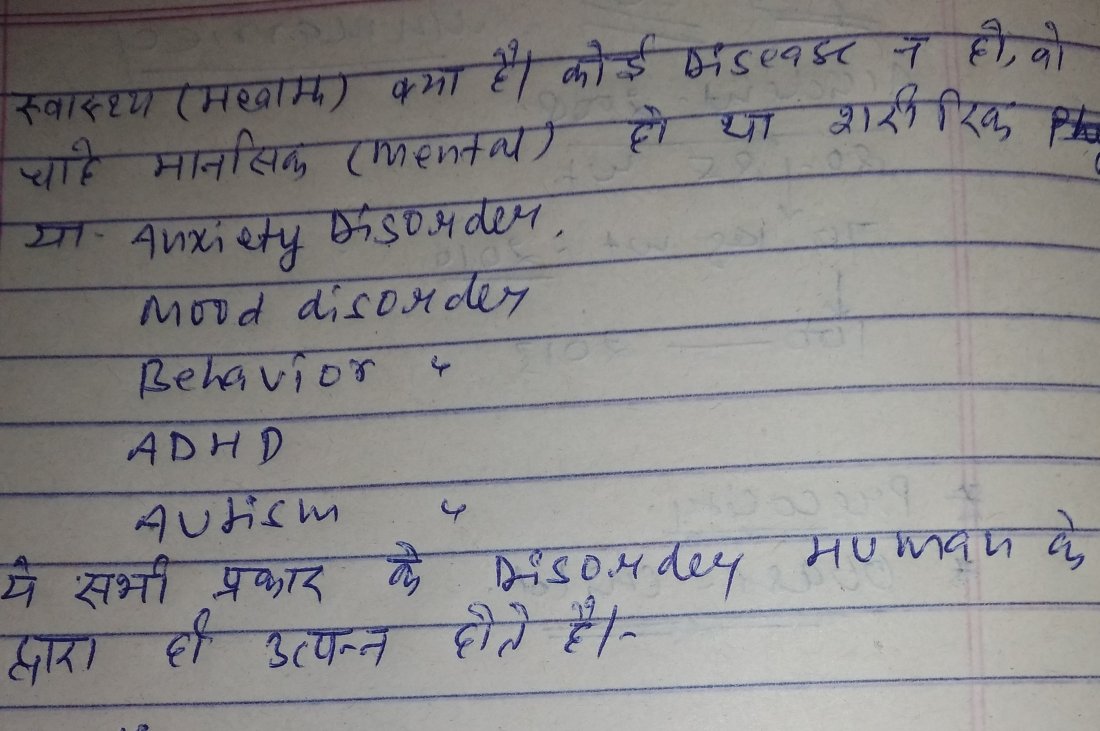 स्वास्थ्य (Health) क्या है। कोई Disease न हो, वो
चाहे मानसिक (mental) हो या शारीरिक
या- Anxiety Disorder.
Mood disorder
Behavior "
ADHD
Autism "
ये सभी प्रकार के Disorder Human के
द्वारा ही उत्पन्न होते है।-